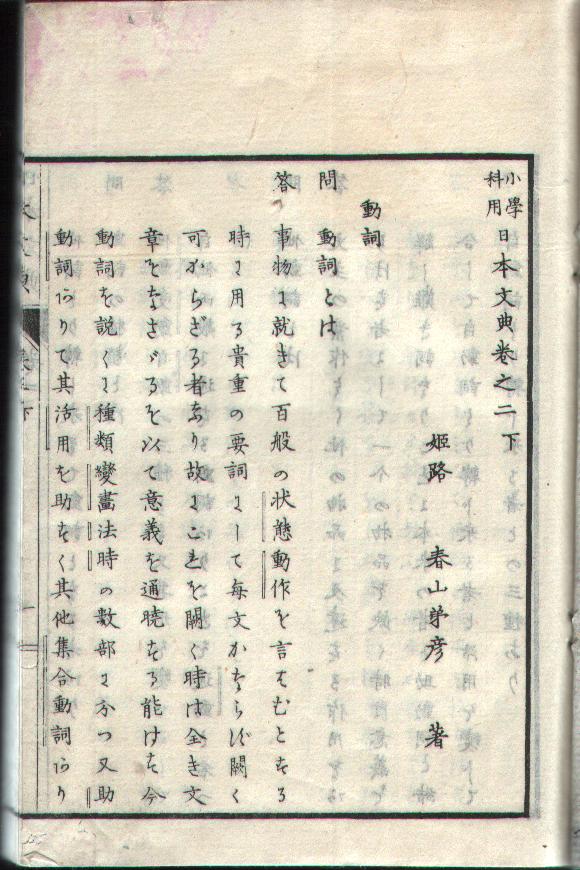 小學科用日本文典卷之二下
姫路 春山弟彦 著
動詞
問 動詞とは
答 事物に就きて百般の状態動作を言はむとする
時に用る貴重の要詞にして毎文かならず闕く
可からざる者なり故にこれを闕く時は全き文
章をなさゞるを以て意義を通曉する能はず今
動詞を説くに種類變畫法時の數部に分つ又助
動詞ありて其活用を助なく其他集合動詞あり